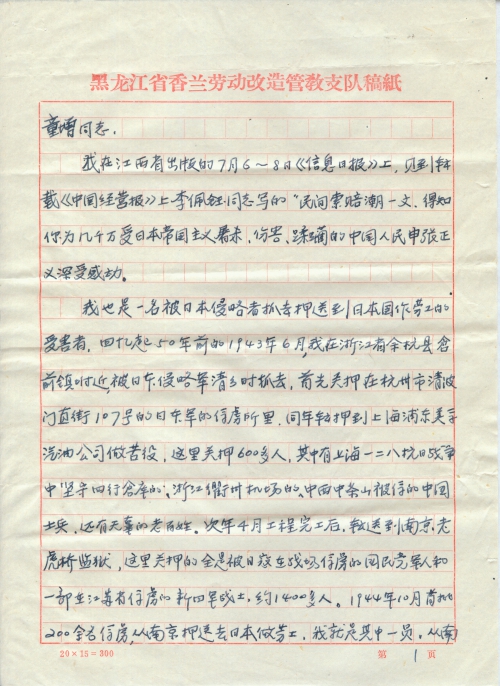 黑龙江省香兰劳动改造管教支队稿紙
童增同志,
我在江西省出版的7月6~8日《信息日报》上,见到转
载《中国经营报》上李佩钰同志写的"民间索赔潮一文,得知
你为几千万受日本帝国主义屠杀、伤害、蹂躏的中国人民申张正
义深受感动。
我也是一名被日本侵略者抓去押送到日本国作劳工的
受害者,回忆起50年前的1943年6月,我在浙江省余杭县含
前镇附近,被日本侵略军清乡时抓去,首先关押在杭州市清波
门直街107号的日本军的俘虏所里,同年转押到上海浦东美孚
汽油公司做苦役,这里关押600多人,其中有上海一二八抗日战争
中"坚守四行仓库的"、浙江衢州机场的、山西中条山被俘的中国
士兵,还有无辜的老百姓。次年4月工程完工后,転送到南京老
虎桥监狱,这里关押的全是被日寇在战场俘虏的国民党军人和
一部在江苏省俘虏的新四军战士,约1400多人。1944年10月首批
200余名俘虏,从南京押送去日本做劳工,我就是其中一员。从南
20×15=300
第 1 页